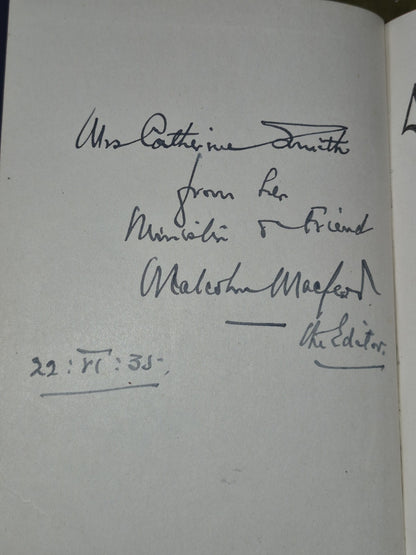 Mrs Catherine Smith
from her
Minister & Friend
Malcolm Macleod.
The Editor.
22 : VI : 35.